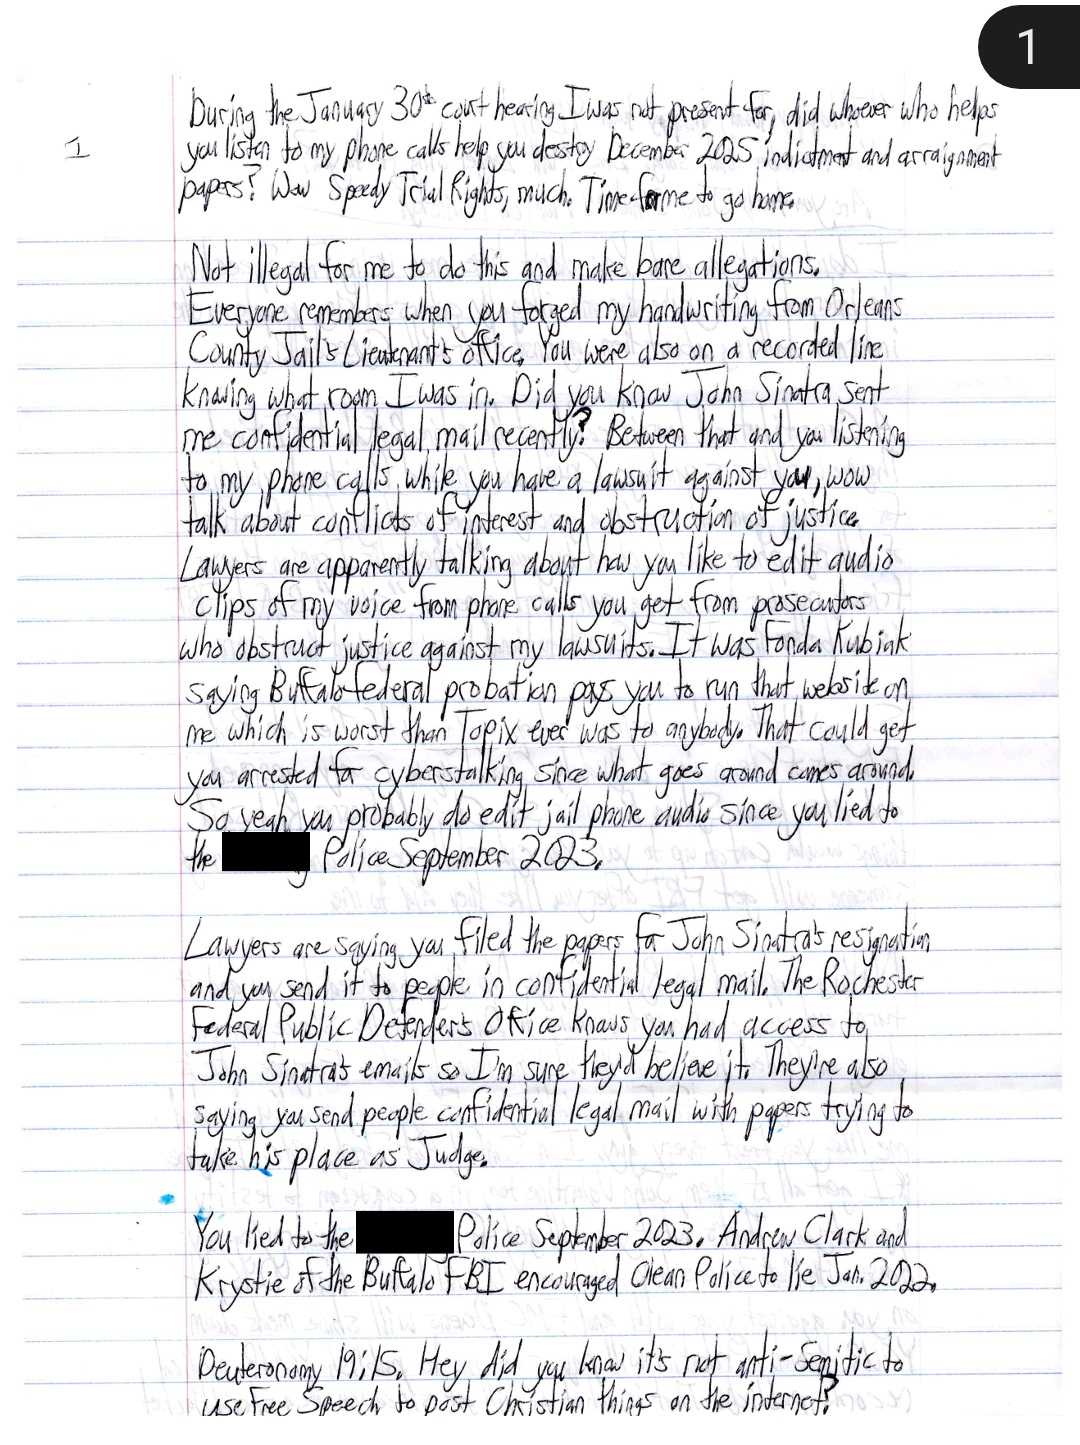 1
1
During the January 30th court hearing I was not present for, did whoever who helps
you listen to my phone calls help you destroy December 2025 indictment and arraignment
papers? Wow Speedy Trial Rights, much. Time for me to go home.
Not illegal for me to do this and make bare allegations.
Everyone remembers when you forged my handwriting from Orleans
County Jail's Lieutenant's office. You were also on a recorded line
knowing what room I was in. Did you know John Sinatra sent
me confidential legal mail recently? Between that and you listening
to my phone calls while you have a lawsuit against you, wow
talk about conflicts of interest and obstruction of justice.
Lawyers are apparently talking about how you like to edit audio
clips of my voice from phone calls you get from prosecutors
who obstruct justice against my lawsuits. It was Fonda Kubiak
saying Buffalo federal probation pays you to run that website on
me which is worst than Topix ever was to anybody. That could get
you arrested for cyberstalking since what goes around comes around.
So yeah you probably do edit jail phone audio since you lied to
the Police September 2023.
Lawyers are saying you filed the papers for John Sinatra's resignation
and you send it to people in confidential legal mail. The Rochester
Federal Public Defender's Office knows you had access to
John Sinatra's emails so I'm sure they'd believe it. They're also
saying you send people confidential legal mail with papers trying to
take his place as Judge.
You lied to the Police September 2023. Andrew Clark and
Krystie of the Buffalo FBI encouraged Olean Police to lie Jan. 2022.
Deuteronomy 19:15. Hey did you know it's not anti-Semitic to
use Free Speech to post Christian things on the internet?